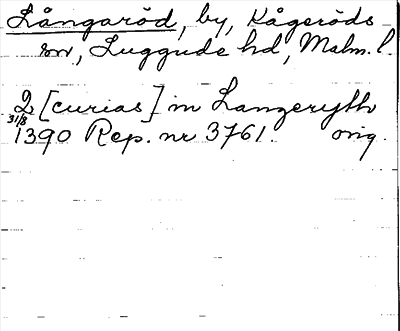 Långaröd, by, Kågeröds
sn, Luggude hd, Malm. l.
2 [curias] in Langerydh
31/8 1390 Rep. nr 3761. orig.